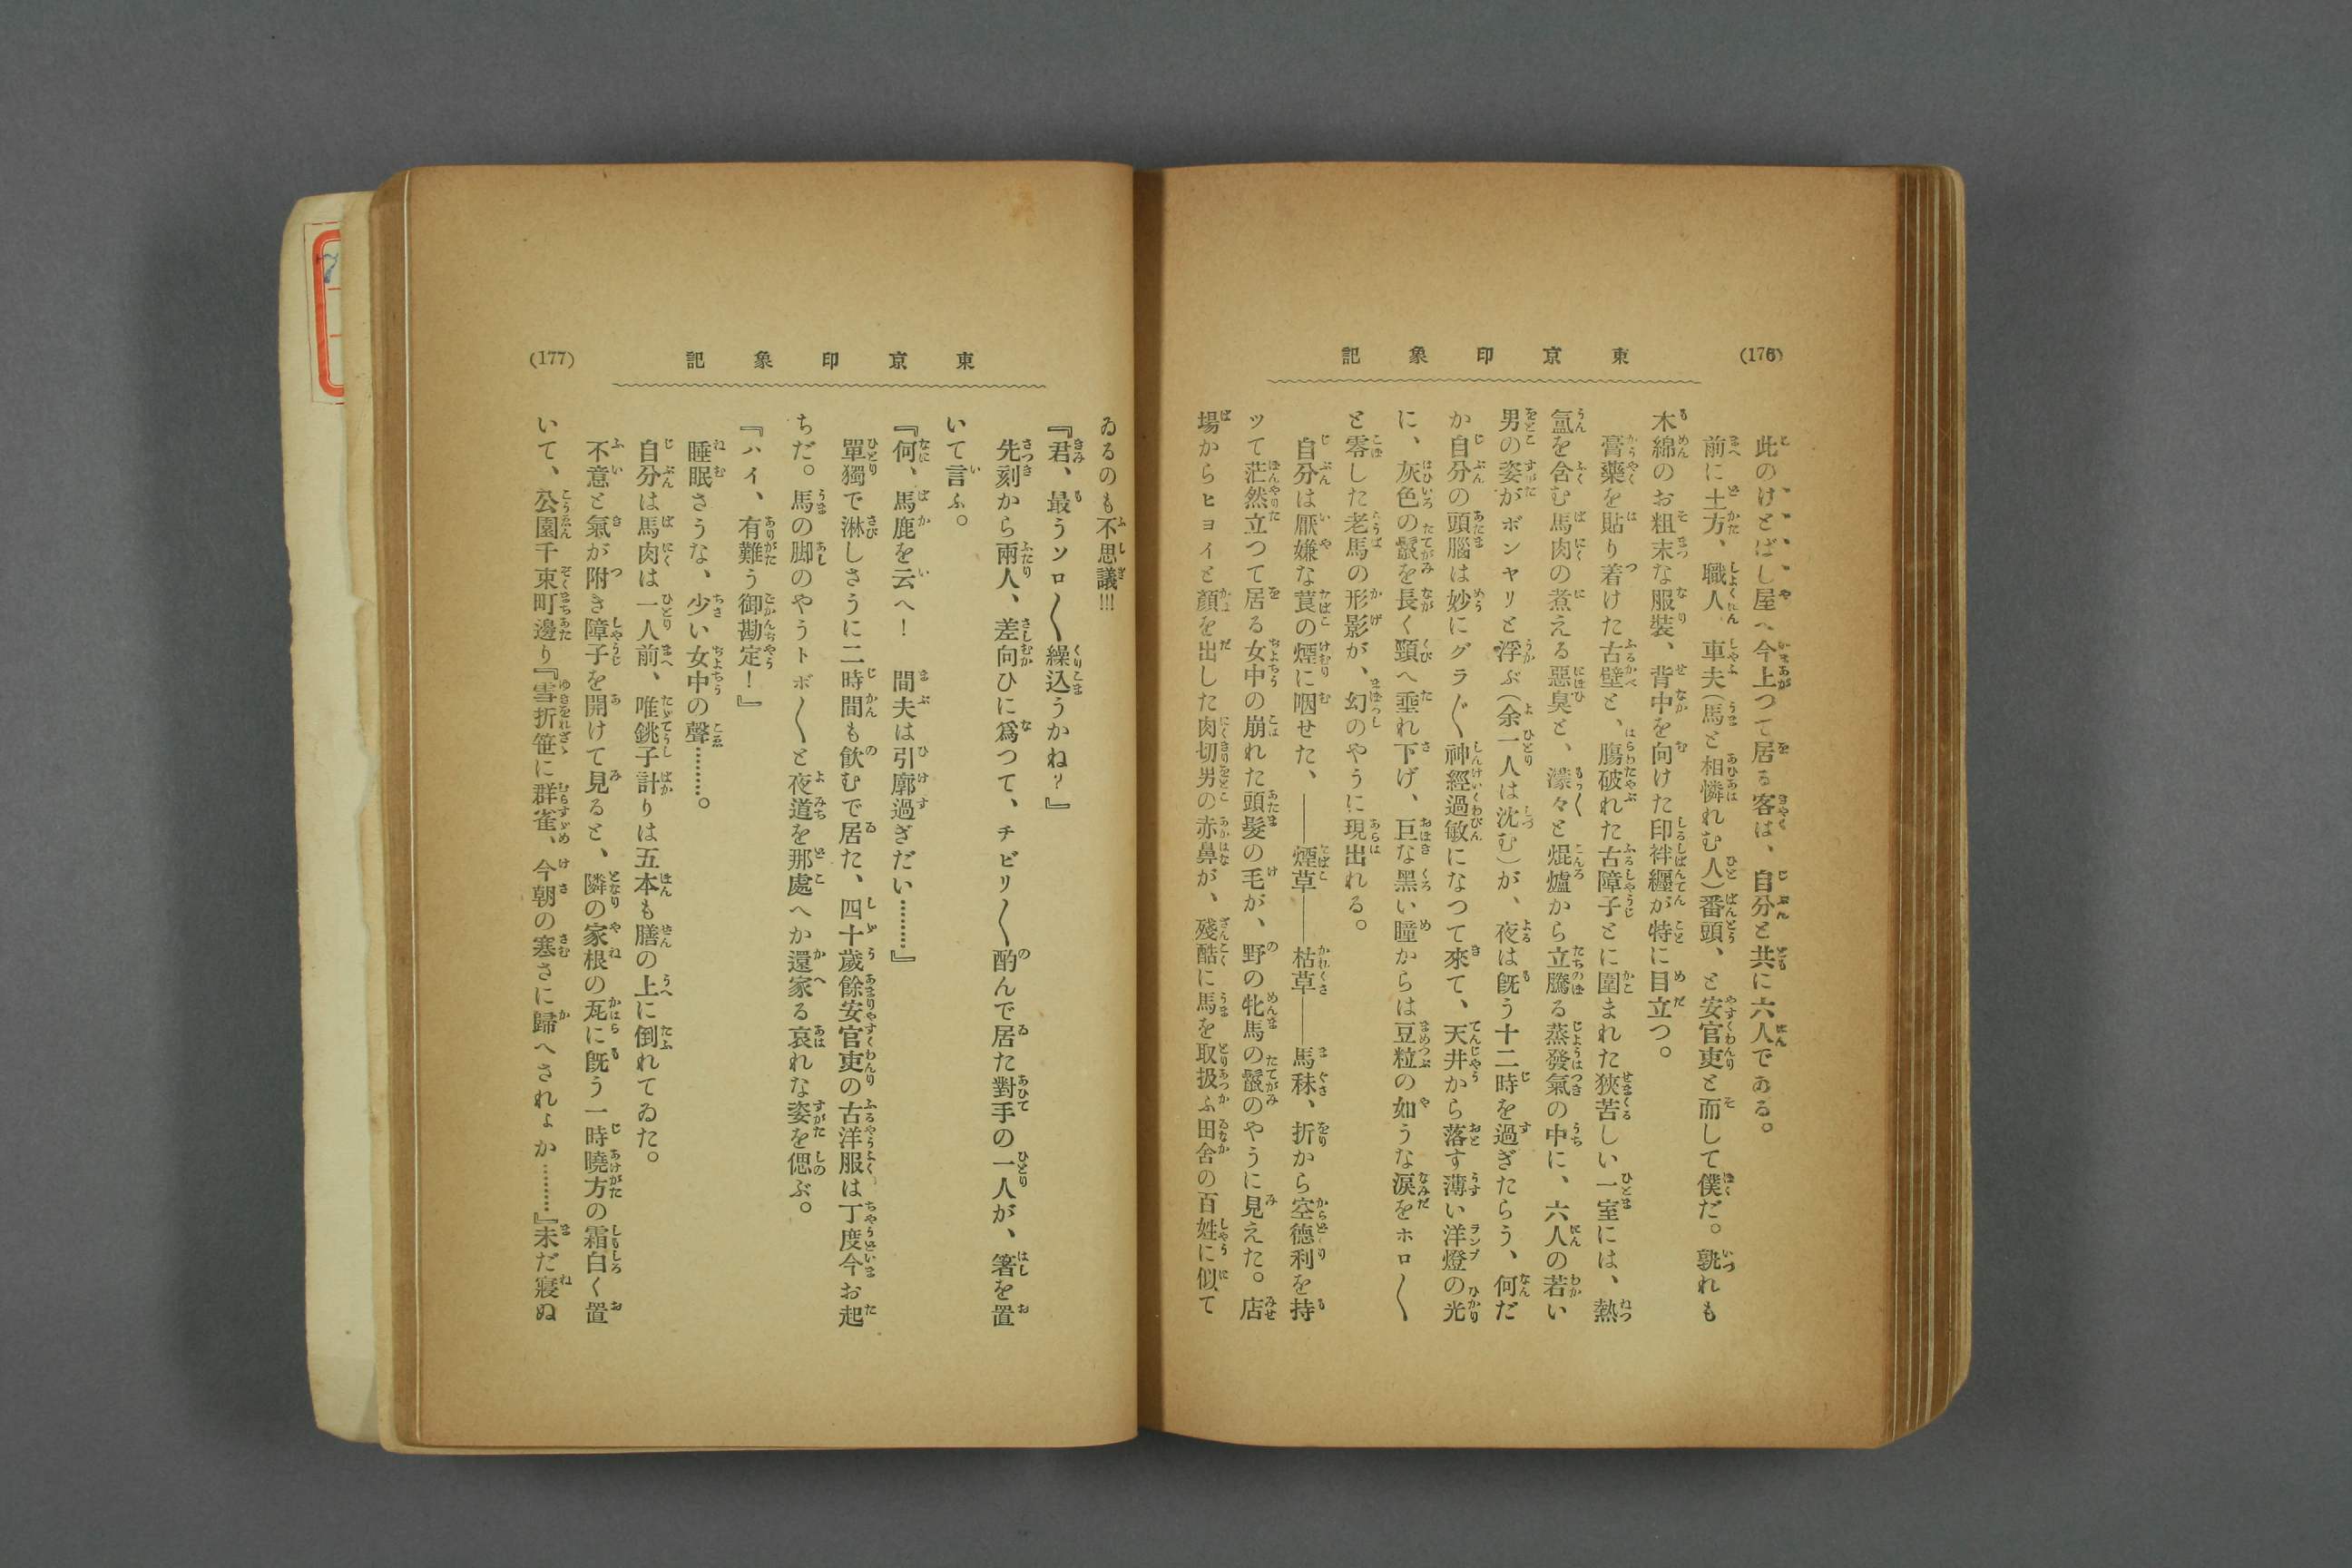 (176)
東京印象記
此のけとばし屋へ今上つて居る客は、自分と共に六人である。
前に土方、職人、車夫(馬と相憐れむ人)番頭、と安官吏と而して僕だ。孰れも
木綿のお粗末な服裝、背中を向けた印袢纒が特に目立つ。
膏藥を貼り着けた古壁と、膓破れた古障子とに圍まれた狹苦しい一室には、熱
氳を含む馬肉の煮える惡臭と、濛々と焜爐から立騰る蒸發氣の中に、六人の若い
男の姿がボンヤリと浮ぶ(余一人は沈む)が、夜は既う十二時を過ぎたらう、何だ
か自分の頭腦は妙にグラ〴〵神經過敏になつて來て、天井から落す薄い洋燈の光
に、灰色の鬣を長く頸へ垂れ下げ、巨な黑い瞳からは豆粒の如うな涙をホロ〱
と零した老馬の形影が、幻のやうに現出れる。
自分は厭嫌な莨の煙に咽せた、――煙草――枯草――馬秣、折から空德利を持
ツて茫然立つて居る女中の崩れた頭髮の毛が、野の牝馬の鬣のやうに見えた。店
場からヒヨイと顏を出した肉切男の赤鼻が、殘酷に馬を取扱ふ田舍の百姓に似て
(177)
東京印象記
ゐるのも不思議!!!
『君、最うソロ〱繰込うかね?』
先刻から兩人、差向ひに爲つて、チビリ〱酌んで居た對手の一人が、箸を置
いて言ふ。
『何、馬鹿を云へ! 間夫は引廓過ぎだい………』
單獨で淋しさうに二時間も飮むで居た、四十歲餘安官吏の古洋服は丁度今お起
ちだ。馬の脚のやうトボ〱と夜道を那處へか還家る哀れな姿を偲ぶ。
『ハイ、有難う御勘定!』
睡眠さうな、少い女中の聲………。
自分は馬肉は一人前、唯銚子計りは五本も膳の上に倒れてゐた。
不意と氣が附き障子を開けて見ると、隣の家根の瓦に既う一時曉方の霜白く置
いて、公園千束町邊り『雪折笹に群雀、今朝の寒さに歸へされよか………』未だ寢ぬ